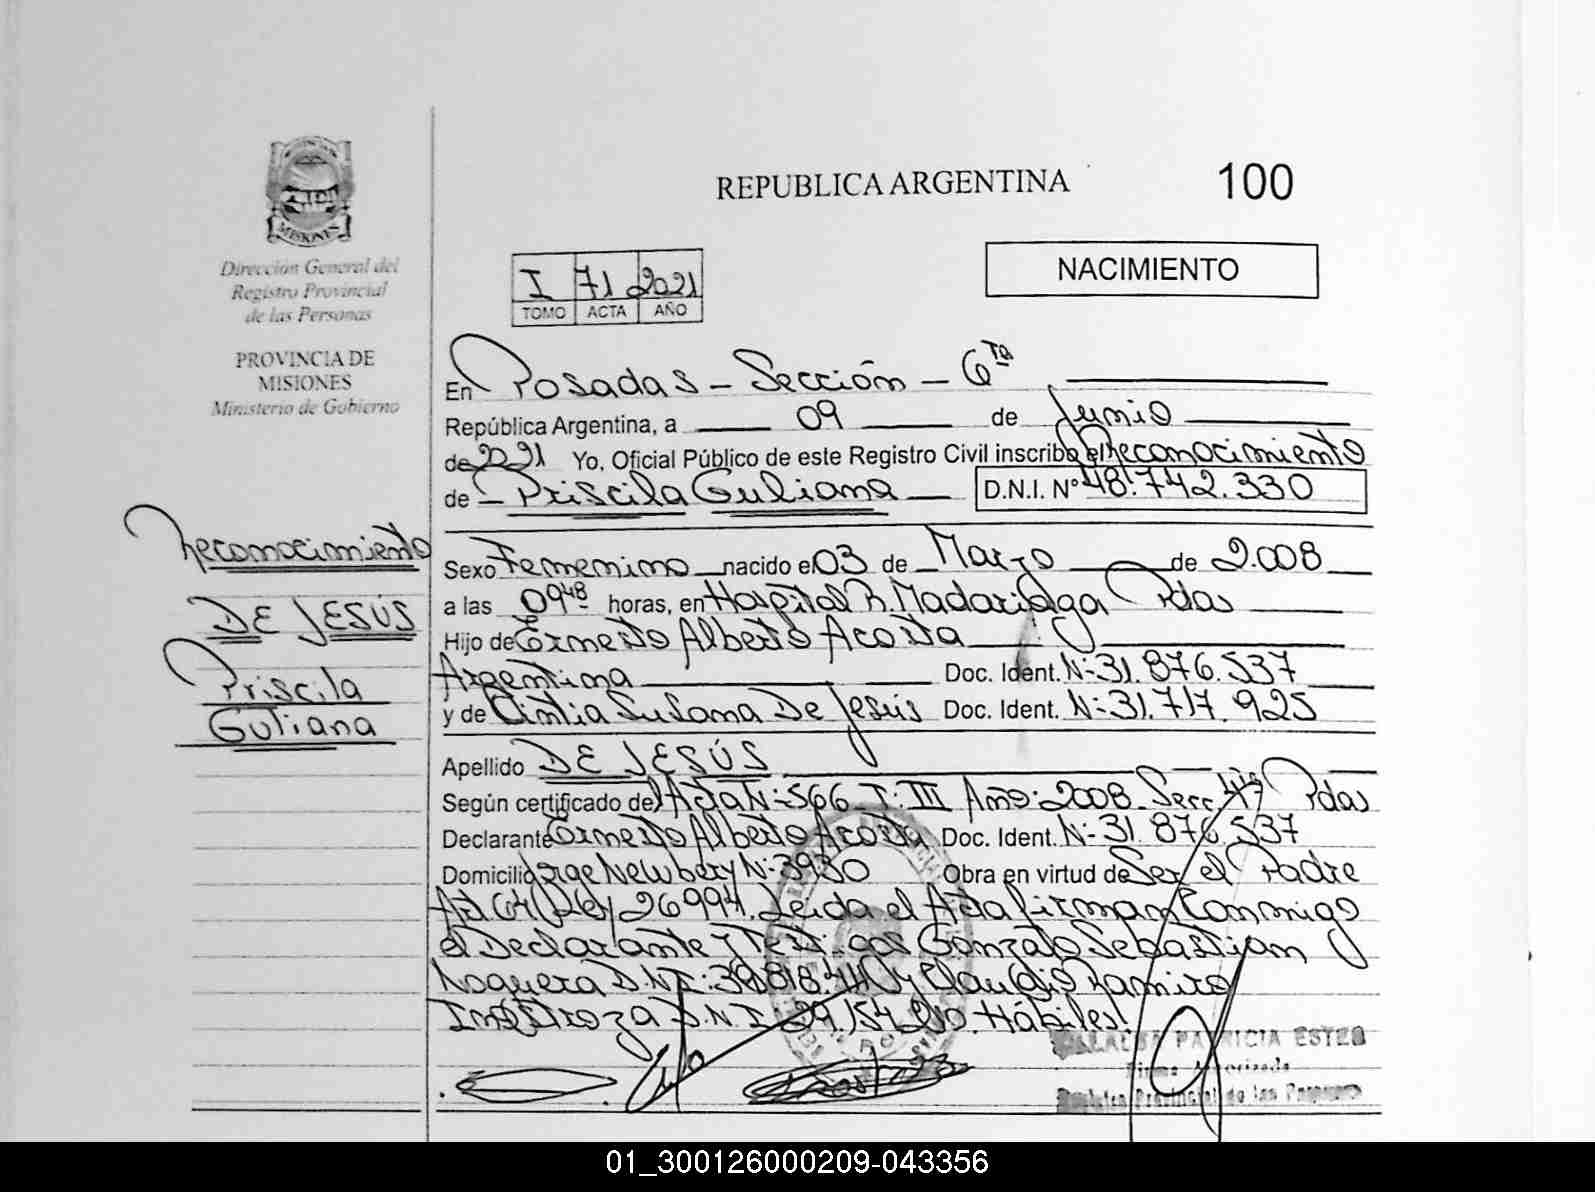 REPUBLICA ARGENTINA
100
MISIONES
Dirección General del
Registro Provincial
de las Personas
PROVINCIA DE
MISIONES
Ministerio de Gobierno
I 71 2021
TOMO ACTA AÑO
NACIMIENTO
En Posadas - Sección - 6ta
República Argentina, a 09 de Junio
de 2021 Yo, Oficial Público de este Registro Civil inscribo el Reconocimiento
de - Priscila Guliana D.N.I. N° 48.742.330
Reconocimiento
DE JESÚS
Priscila
Guliana
Sexo Femenino nacido el 03 de Marzo de 2.008
a las 09 48 horas, en Hospital R. Madariaga Pdas
Hijo de Ernesto Alberto Acosta
Argentina Doc. Ident. N: 31.876.537
y de Cintia Susana De Jesús Doc. Ident. N: 31.717.925
Apellido DE JESÚS
Según certificado del Acta N: 566 T: III Año: 2008 Secc 4ta Pdas
Declarante Ernesto Alberto Acosta Doc. Ident. N: 31.876.537
Domicilio Jorge Newbery N: 3930 Obra en virtud de Ser el Padre
Art 64 Ley 26994. Leida el Acta firman Conmigo
el Declarante y Testigos Gonzalo Sebastian
Noguera D.N.I: y Claudio Ramiro
D.N.I 29.154.210 Hábiles!
PATRICIA ESTER
Firma Autorizada
Registro Provincial de las Personas
01_300126000209-043356